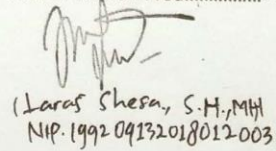 (Laras Shesa., S.H.,MH)
NIP. 199209132018012003